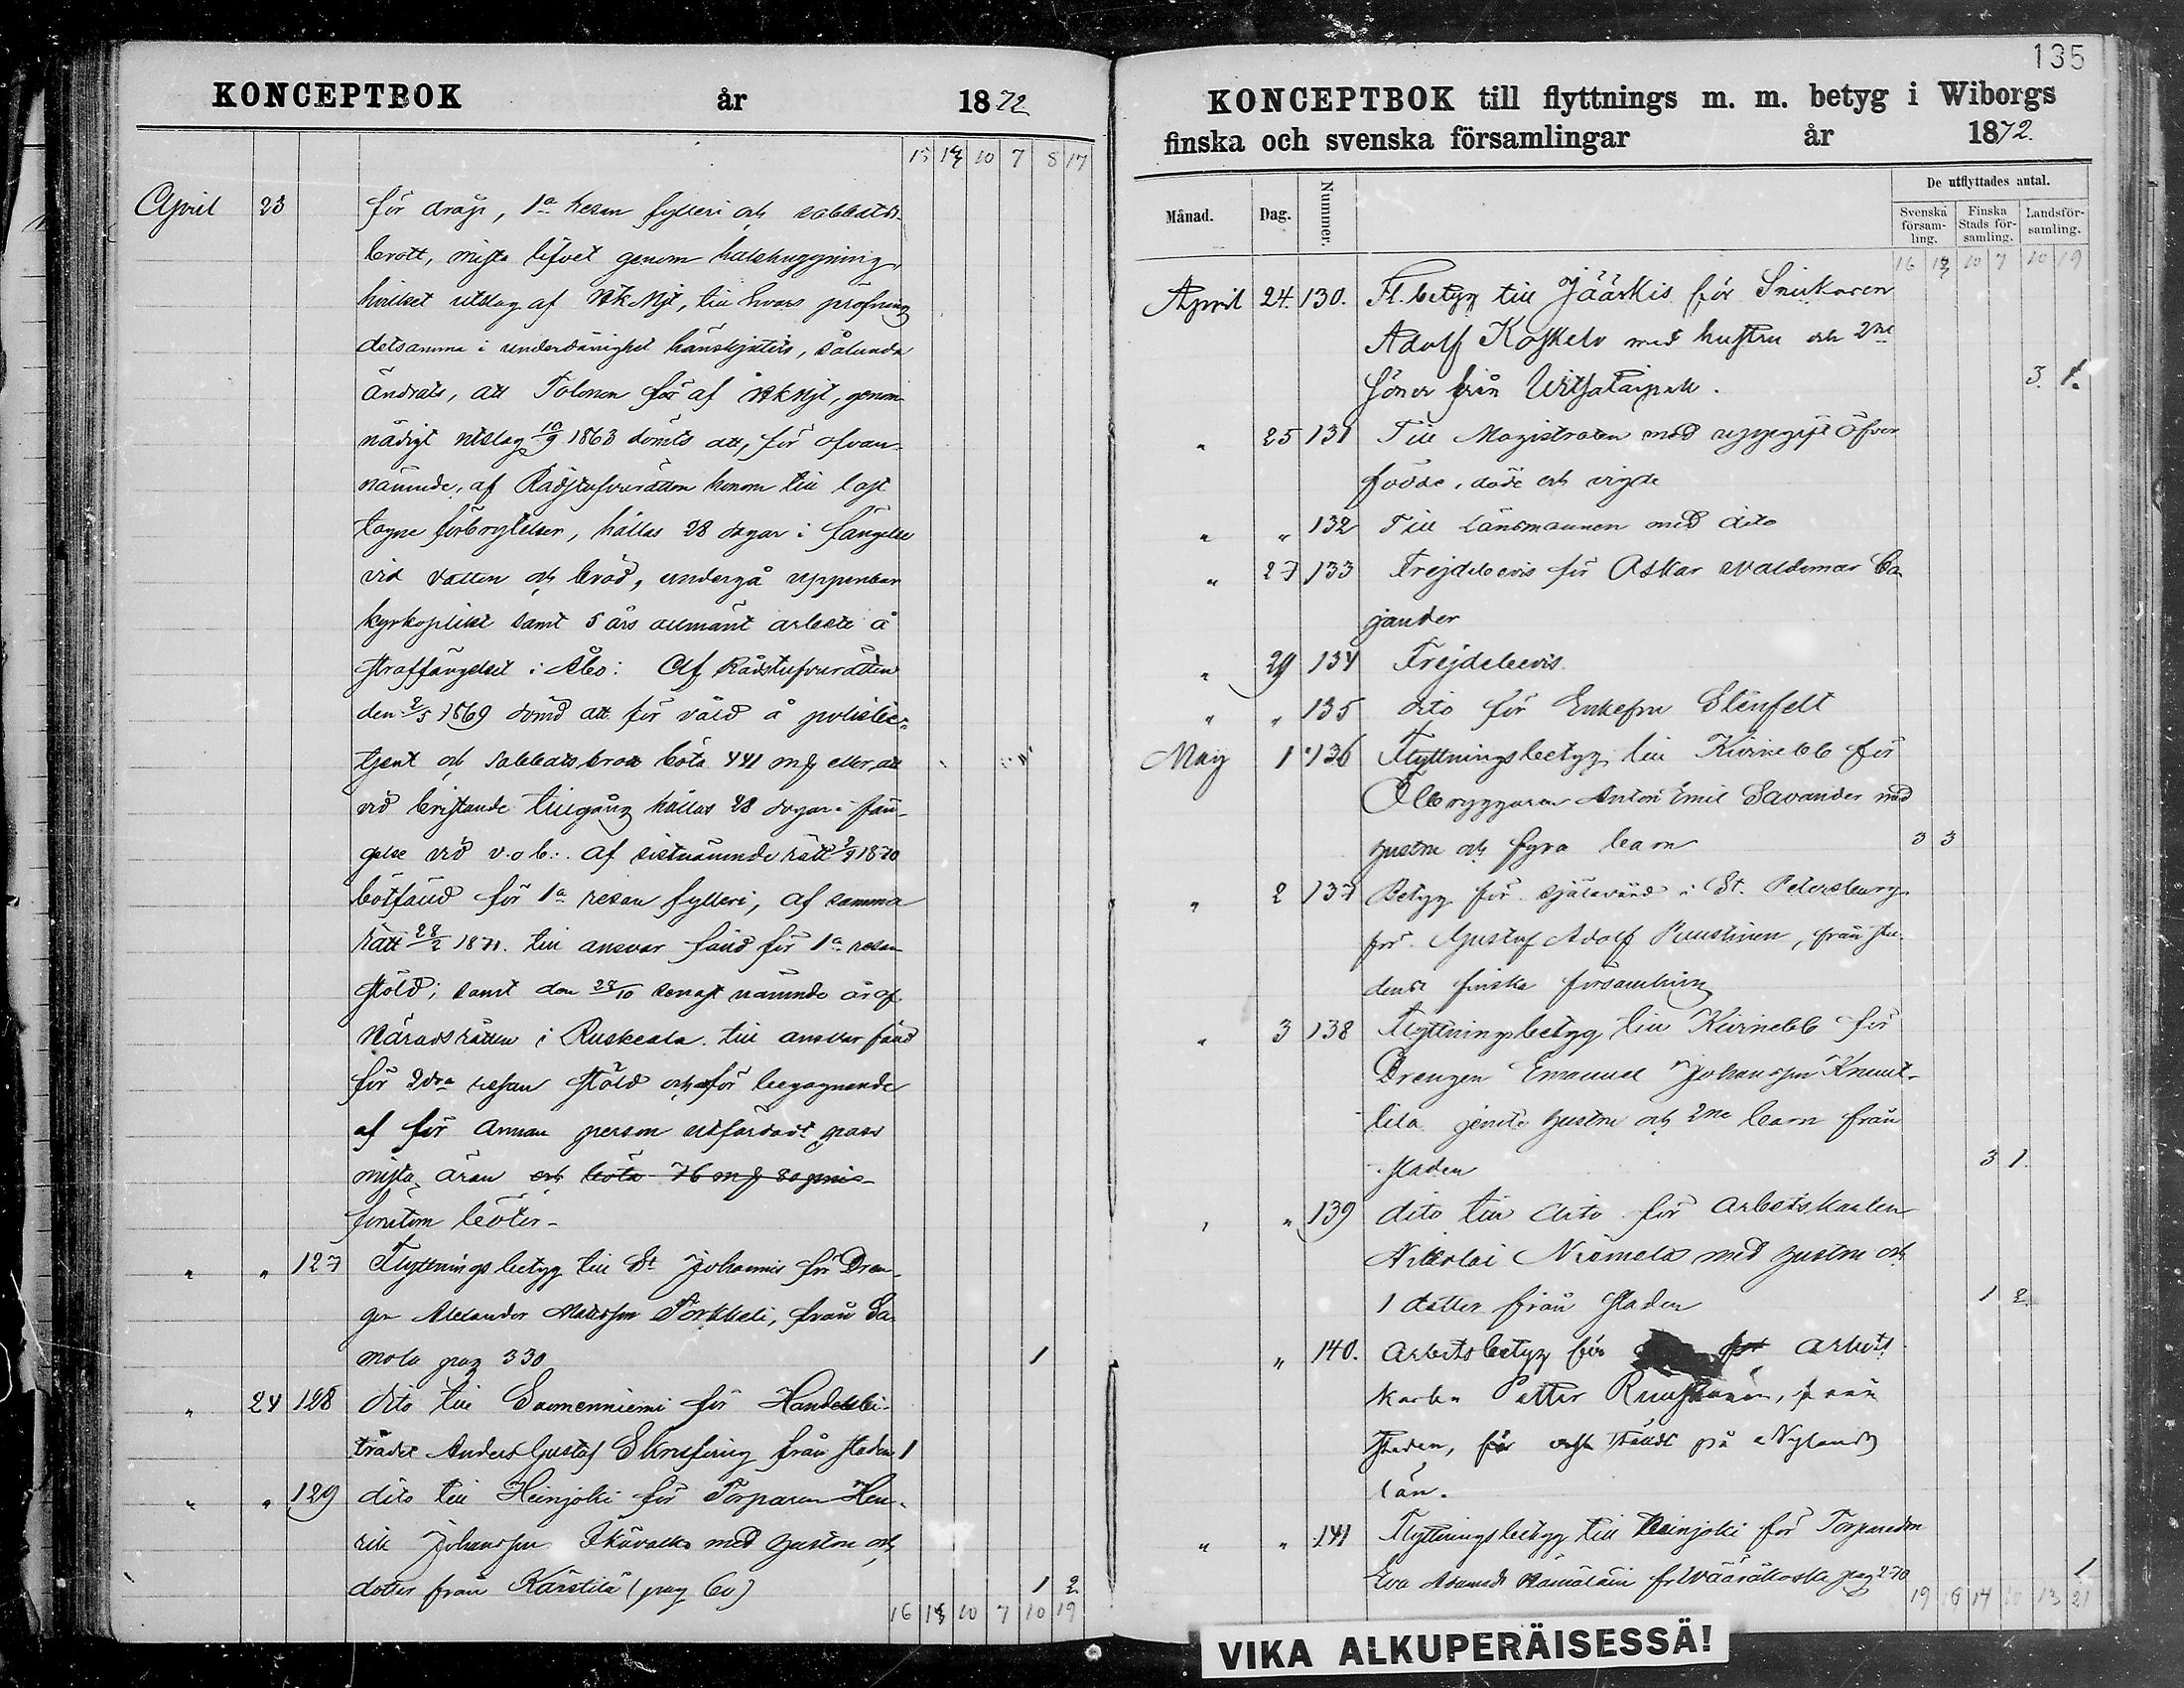 KONCEPTBOK år 1872
15 14 10 7 8 17
April 23 för dråp, 1a resan fylleri och sabbats-
brott, mista lifvet genom halshuggning,
hvilket utslag af HKMjt, till hvars pröfning
detsamma i underdånighet hänskjutits, sålunda
ändrats, att Tolonen för af HKMjt, genom
nådigt utslag 10/9 1863 dömts att, för ofvan-
nämnde, af Rådstufvurätten honom till last
tagne förbrytelser, hållas 28 dagar i fängelse
vid vatten och bröd, undergå uppenbar
kyrkoplikt samt 5 års allmänt arbete å
straffängelset i Åbo: Af Rådstufvurätten
den 2/5 1869 dömd att för våld å polisbe-
tjent och sabbatsbrott böta 441 mf eller att
vid bristande tillgång hållas 28 dagar i fän-
gelse vid v. o b.: af sistnämnde rätt 2/9 1870
botfäld för 1a resan fylleri, af samma
rätt 28/2 1871. till ansvar fäld för 1a resan
stöld; samt den 28/10 senast nämnde år af
Häradsrätten i Ruskeala till ansvar fäld
för 2dra resan stöld och för begagnande
af för annan person utfärdadt pass
mista äran och böta 76 mf 80 pni
förutom böter-
" " 127 Flyttningsbetyg till St Johannis för Dren-
gen Alexander Matsson Torkkeli, från Sa-
mola pag 330 1
" 24 128 dito till Suomenniemi för Handelsbi-
trädet Anders Gustaf Skrufering från staden 1
" " 129 dito till Heinjoki för Torparen Hen-
rik Johansson Ikävalko med hustru och
dotter från Kärstilä (pag 60) 1 2
16 14 10 7 10 19
135
KONCEPTBOK till flyttnings m. m. betyg i Wiborgs
finska och svenska församlingar år 1872.
Månad. Dag. Nummer. De utflyttades antal.
Svenska församling. Finska Stads församling. Landsförsamling.
16 14 10 7 10 19
April 24. 130. Fl. betyg till Jääskis för Snickaren
Adolf Koskelo med hustru och 2ne
söner från Uitsataipale. 3. 1.
" 25 131 Till Magistraten med uppgift öfver
födde, döde och vigde
" " 132 Till Länsmannen med dito
" 27 133 Frejdebevis för Oskar Waldemar Ca-
jander
" 29 134 Frejdebevis
" " 135 dito för Enkefru Stenfelt
Maj 1 136 Flyttningsbetyg till Kivinebb för
Ölbryggaren Anton Emil Savander med
hustru och fyra barn 3 3
" 2 137 Betyg för själavård i St. Petersburg
för Gustaf Adolf Puustinen, från sta-
dens finska församling
" 3 138 Flyttningsbetyg till Kivinebb för
Drengen Emanuel Johansson Knuut-
tila jemte hustru och 2ne barn från
staden 3 1.
" " 139 dito till dito för Arbetskarlen
Nikolai Niemelä med hustru och
1 dotter från staden 1 2.
" 140. Arbetsbetyg för for arbets
karlen Petter Ruustanen, från
staden, för och ställd på Nylands
län.
" " 141 Flyttningsbetyg till Heinjoki för Torparedon
Eva Adamsdr Hämäläin fr Wääräkoska pag 270 1
19 16 14 10 13 21
VIKA ALKUPERÄISESSÄ!